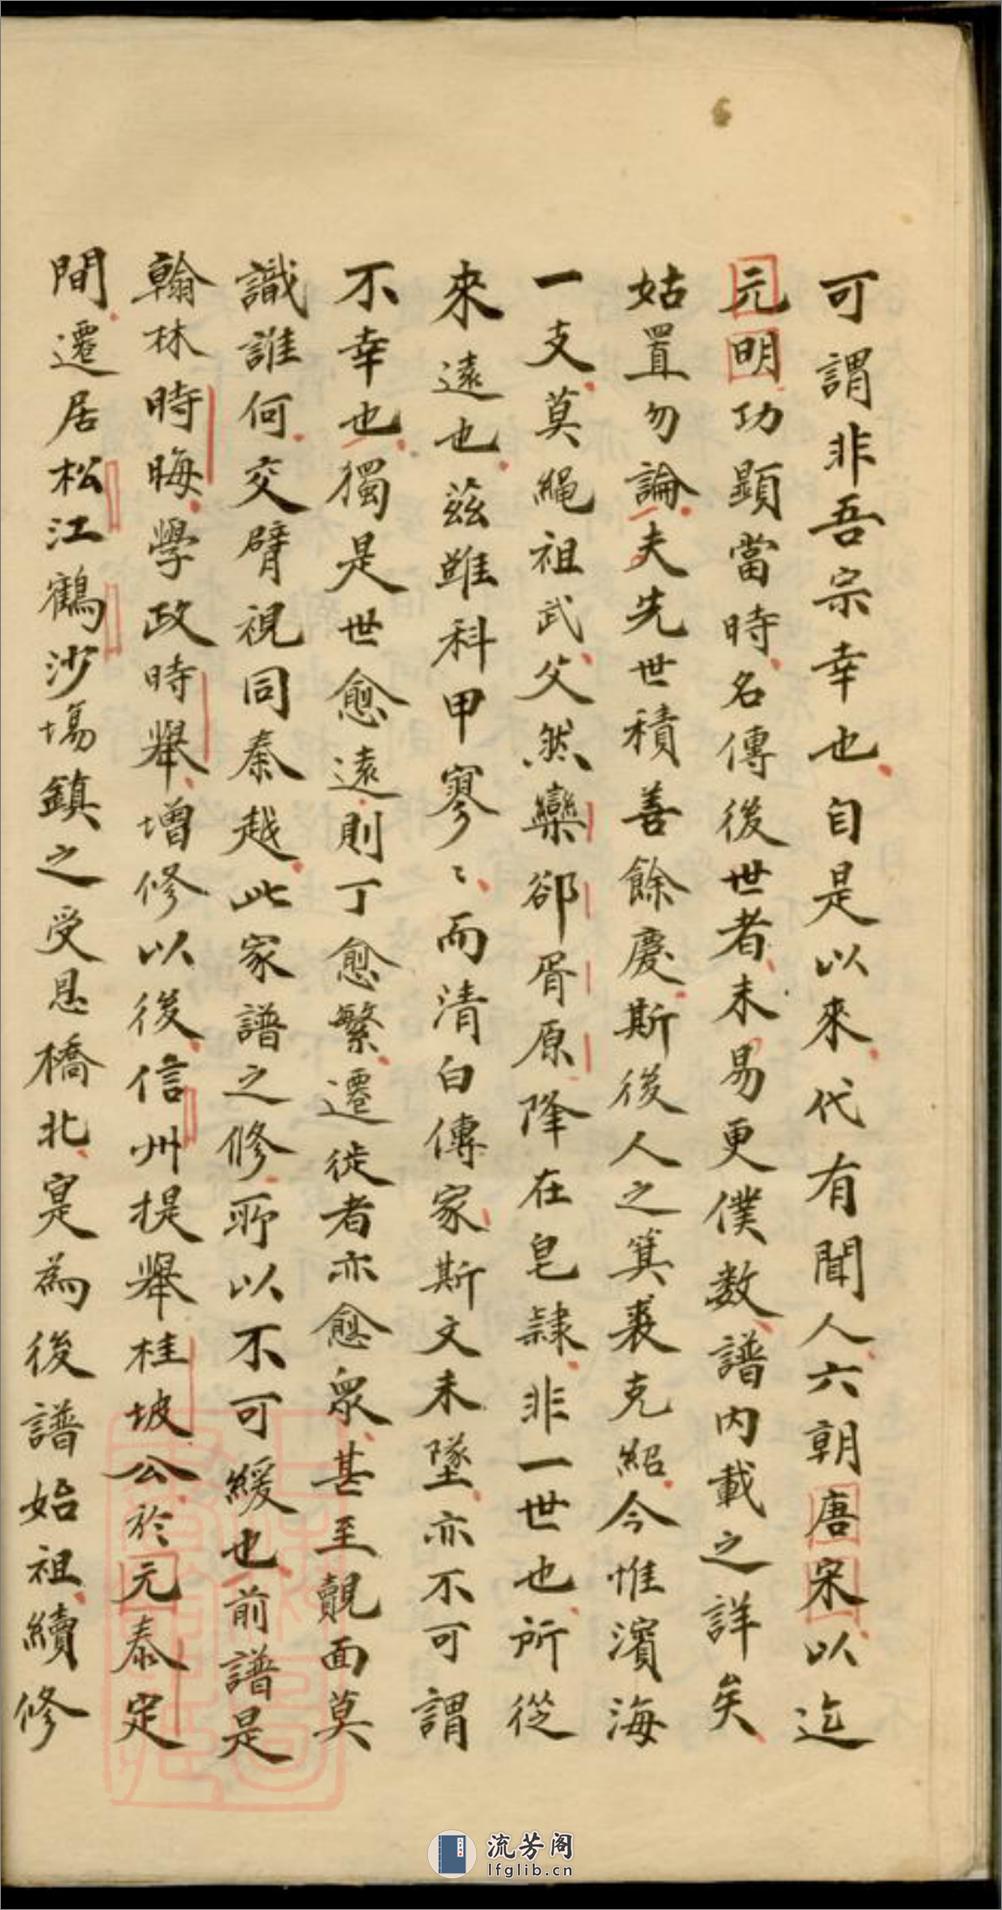 可謂非吾宗幸也自是以來代有聞人六朝唐宋以迄
元明功顯當時名傳後世者未易更僕數譜內載之詳矣
姑置勿論夫先世積善餘慶斯後人之箕裘克紹今惟濱海
一支莫繩祖武父然欒郤胥原降在皂隸非一世也所從
來遠也茲雖科甲寥〻而清白傳家斯文未墜亦不可謂
不幸也獨是世愈遠則丁愈繁遷徙者亦愈眾甚至覿面莫
識誰何交臂視同秦越此家譜之修所以不可緩也前譜是
翰林時晦學政時舉增修以後信州提舉桂坡公於元泰定
間遷居松江鶴沙場鎮之受恩橋北寔為後譜始祖續修
流芳阁
lfglib.cn